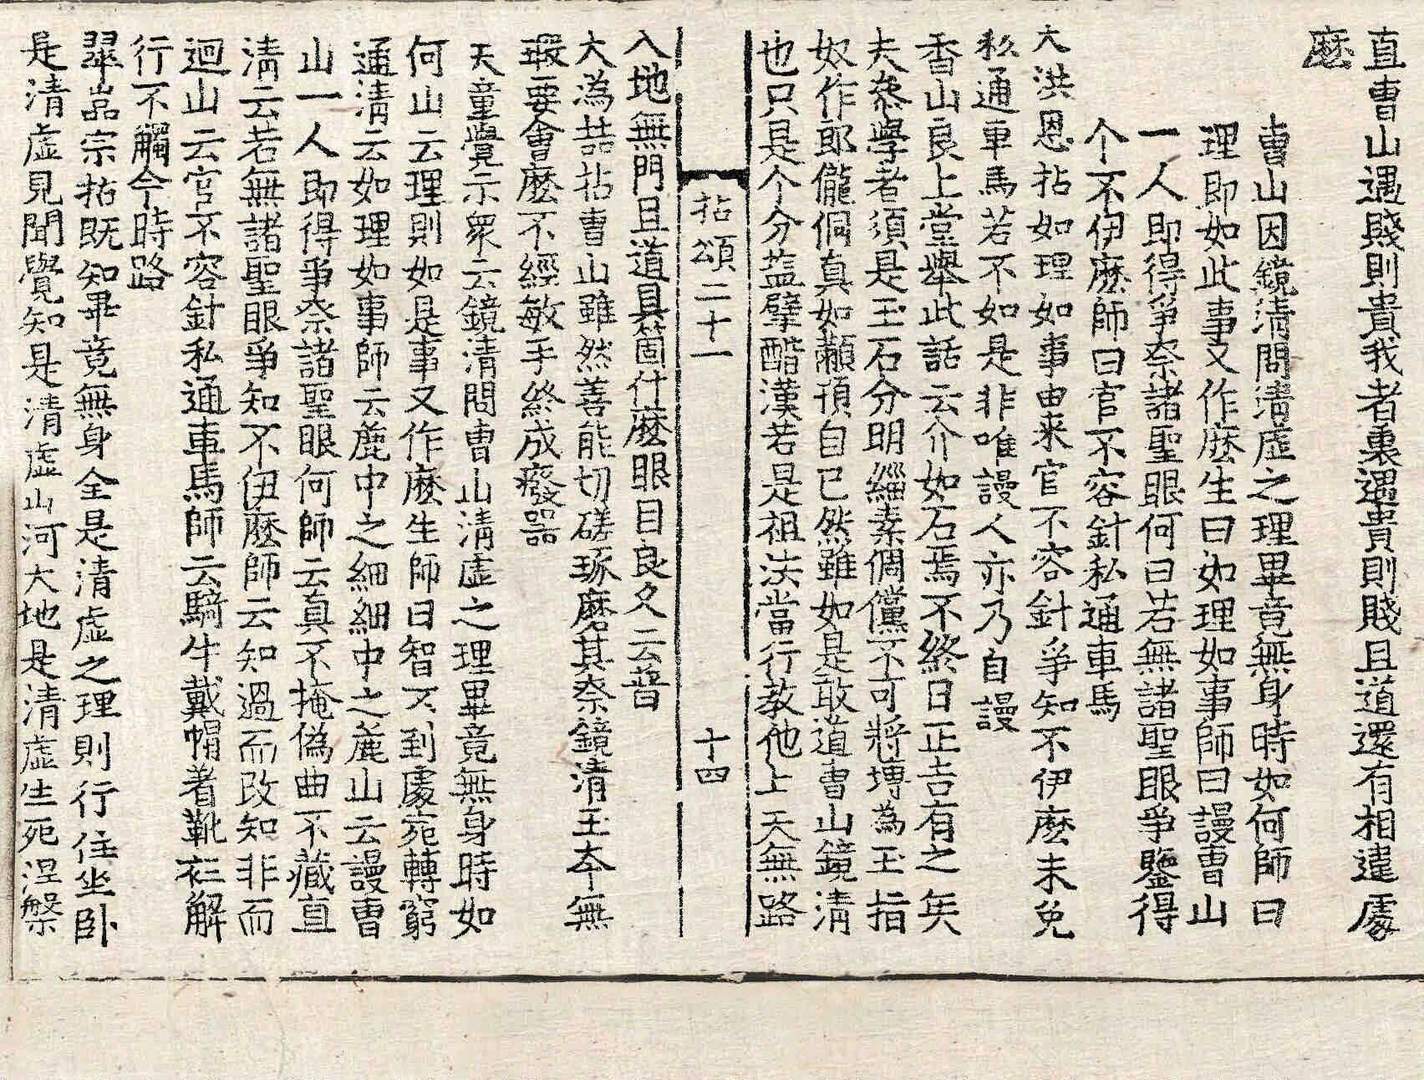 直曺山遇賤則貴我者裏遇貴則賤且道還有相違處
麽
曺山因鏡淸問淸虛之理畢竟無身時如何師曰
理即如此事又作麽生曰如理如事師曰謾曺山
一人即得爭奈諸聖眼何曰若無諸聖眼爭鑒得
个不伊麽師曰官不容針私通車馬
大洪恩拈如理如事由来官不容針爭知不伊麽未免
私通車馬若不如是非唯謾人亦乃自謾
香山良上堂舉此話云介如石焉不終日正吉有之矣
夫叅學者須是玉石分明緇素倜儻不可將塼為玉指
奴作郎儱侗真如顢頇自己然雖如是敢道曺山鏡淸
也只是个分䓁擘酷漢若是祖法當行教他上天無路
拈頌二十一 十四
入地無門且道具箇什麽眼目良久云䔽
大溈喆拈曺山雖然善能切磋琢磨其奈鏡淸玉夲無
瑕要會麽不經敏手終成癈器
天童覺示衆云鏡淸問曺山淸虛之理畢竟無身時如
何山云理則如是事又作麽生師曰智不到處宛轉窮
通淸云如理如事師云麁中之細細中之麁山云謾曺
山一人即得爭奈諸聖眼何師云真不掩偽曲不藏直
淸云若無諸聖眼爭知不伊麽師云知過而改知非而
迴山云官不容針私通車馬師云騎牛戴帽著靴衫解
行不觸今時路
翠嵓宗拈既知畢竟無身全是淸虛之理則行住坐卧
是淸虛見聞覺知是淸虛山河大地是淸虛生死涅槃